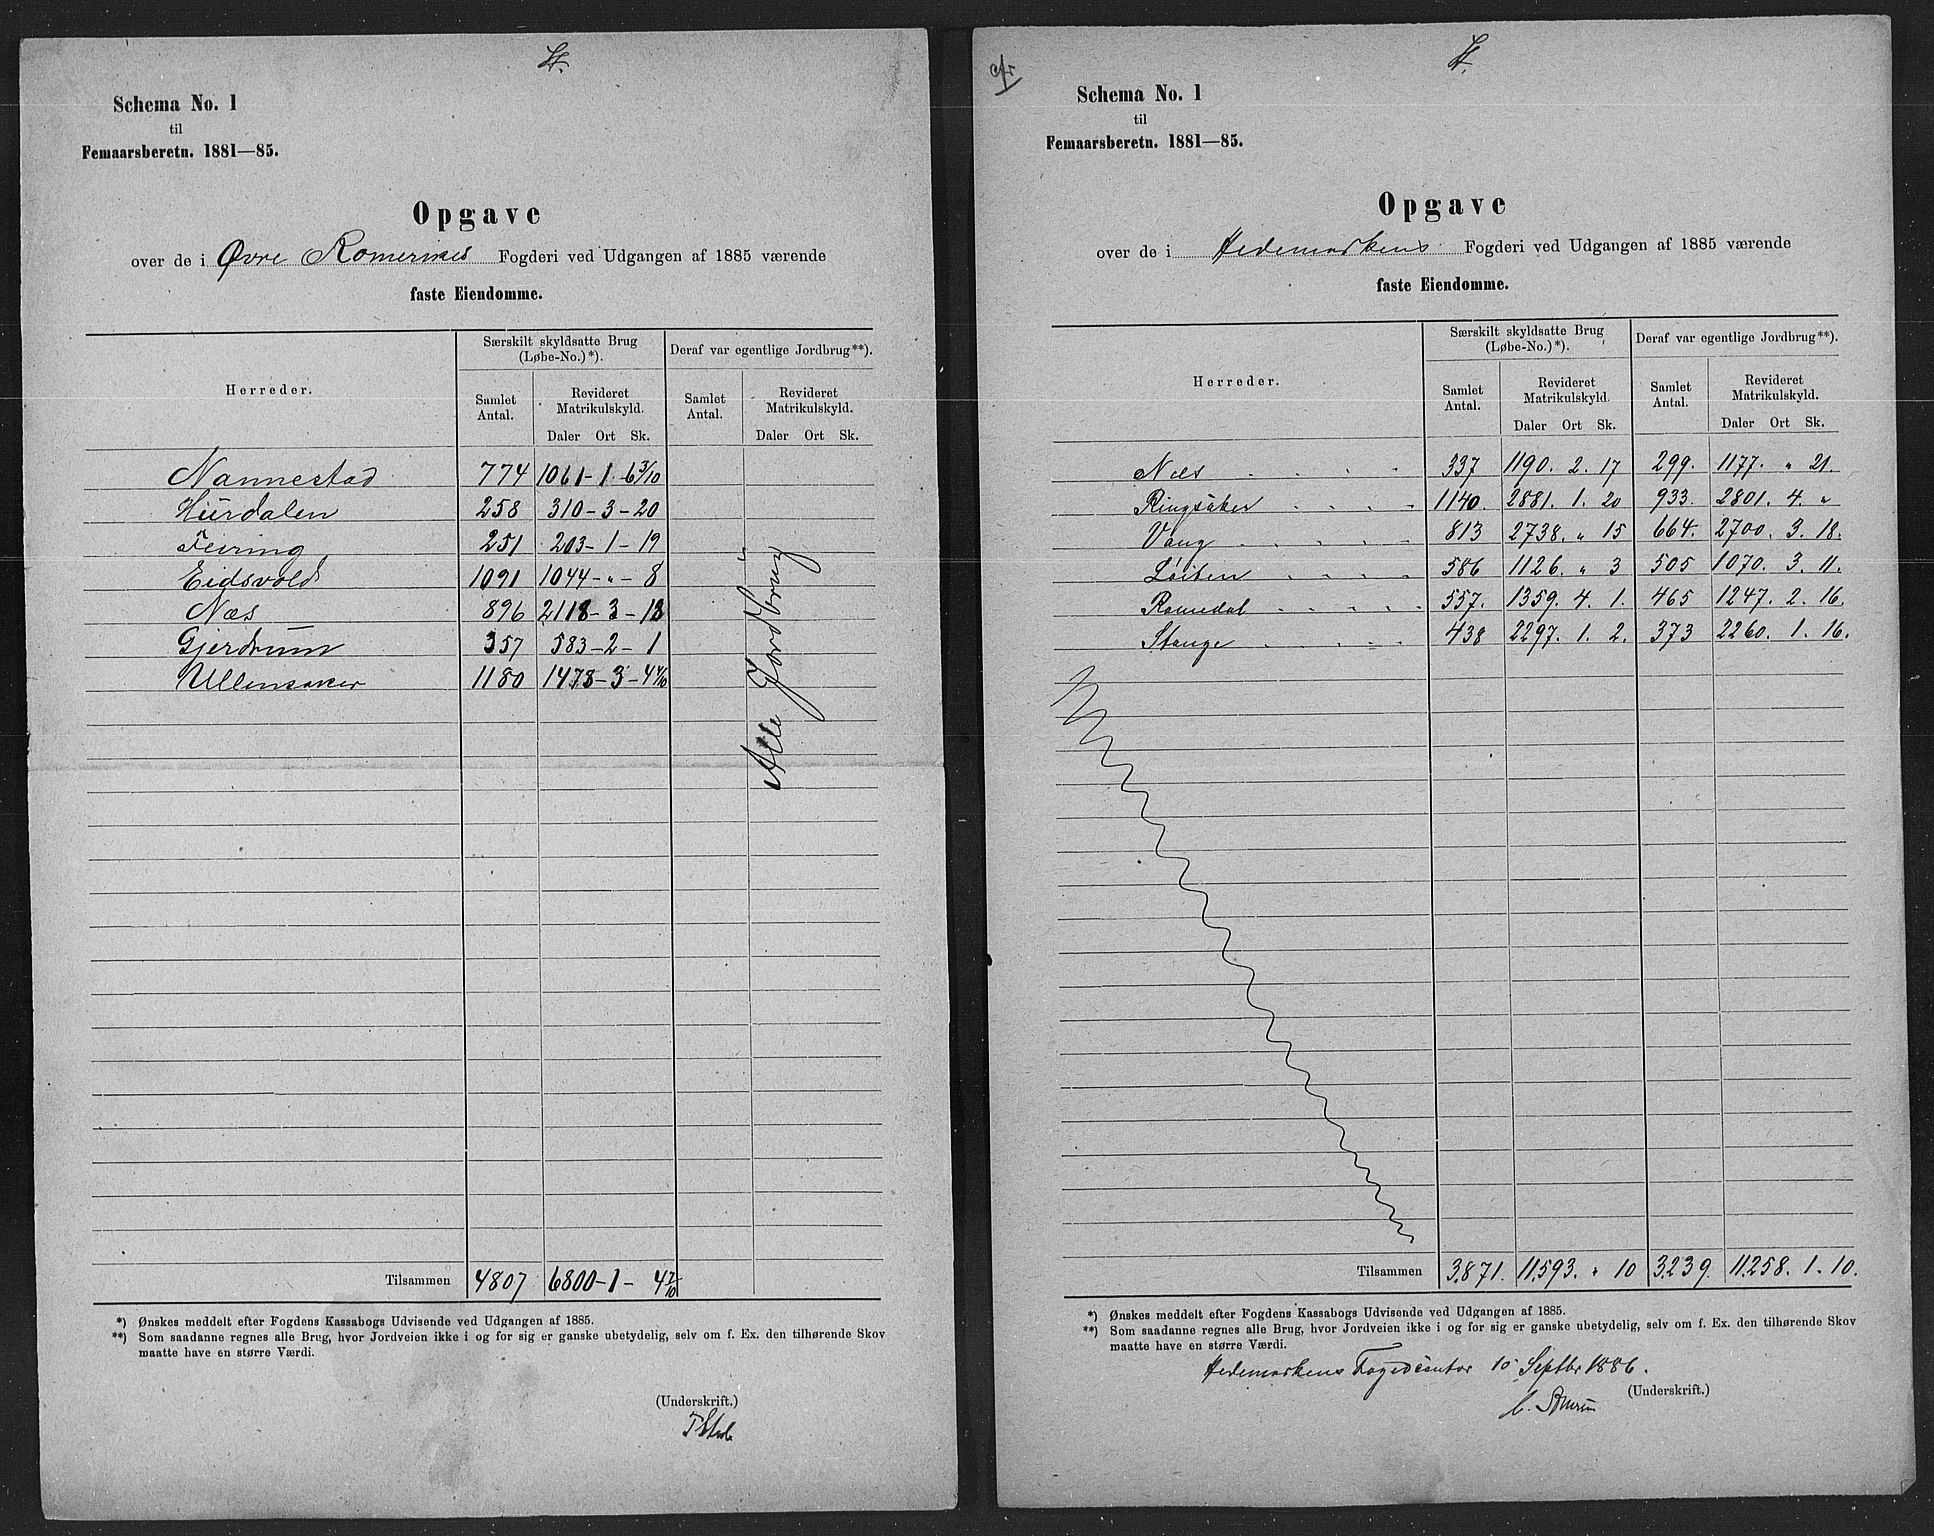 Schema No. 1
til
Femaarsberetn. 1881—85.
Opgave
over de i Øvre Romerikes Fogderi ved Udgangen af 1885 værende
faste Eiendomme.
Herreder.
Særskilt skyldsatte Brug (Løbe-No.)*).
Deraf var egentlige Jordbrug**).
Samlet Antal.
Revideret Matrikulskyld.
Samlet Antal.
Revideret Matrikulskyld.
Daler Ort Sk. Daler Ort Sk.
Nannestad 774 1061-1. 6 3/10
Hurdalen 258 310-3-20
Feiring 251 203-1-19
Eidsvold 1091 1044-"-8
Næs 896 2118-3-18
Gjerdrum 357 583-2-1
Ullensaker 1180 1478-3-4 4/10
Alle Jordbrug
Tilsammen 4807 6800-1-4 7/10
*) Ønskes meddelt efter Fogdens Kassabogs Udvisende ved Udgangen af 1885.
**) Som saadanne regnes alle Brug, hvor Jordveien ikke i og for sig er ganske ubetydelig, selv om f. Ex. den tilhørende Skov
maatte have en større Værdi.
(Underskrift.)
cfr
Schema No. 1
til
Femaarsberetn. 1881—85.
Opgave
over de i Hedemarkens Fogderi ved Udgangen af 1885 værende
faste Eiendomme.
Herreder.
Særskilt skyldsatte Brug (Løbe-No.)*).
Deraf var egentlige Jordbrug**).
Samlet Antal.
Revideret Matrikulskyld.
Samlet Antal.
Revideret Matrikulskyld.
Daler Ort Sk. Daler Ort Sk.
Næs . . . . 337 1190. 2. 17 299. 1177. " 21.
Ringsaker . . . . 1140. 2881. 1. 20 933. 2801. 4. "
Vang . . . . . 813 2738. " 15 664. 2700. 3. 18.
Løiten . . . . 586 1126. " 3 505 1070. 3. 11.
Romedal . . . . . 557. 1359. 4. 1. 465 1247. 2. 16.
Stange . . . . 438 2297. 1. 2. 373 2260. 1. 16.
Tilsammen 3.871. 11.593. " 10 3.239. 11.258. 1. 10.
*) Ønskes meddelt efter Fogdens Kassabogs Udvisende ved Udgangen af 1885.
**) Som saadanne regnes alle Brug, hvor Jordveien ikke i og for sig er ganske ubetydelig, selv om f. Ex. den tilhørende Skov
maatte have en større Værdi.
Hedemarkens Fogedcontor 15 Septbr 1886.
(Underskrift.)